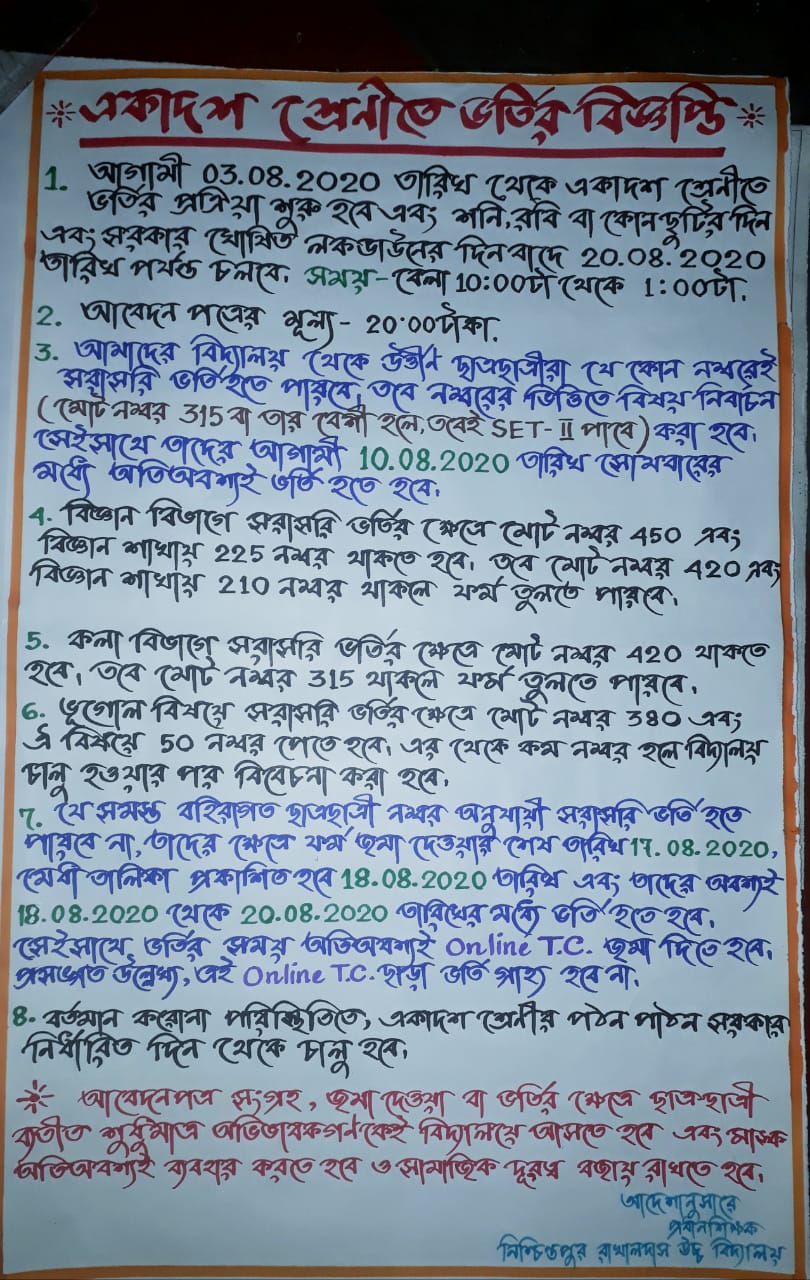 একাদশ শ্রেনীতে ভর্তির বিজ্ঞপ্তি
1. আগামী 03.08.2020 তারিখ থেকে একাদশ শ্রেনীতে
ভর্তির প্রক্রিয়া শুরু হবে এবং শনি, রবি বা কোন ছুটির দিন
এবং সরকার ঘোষিত লকডাউনের দিন বাদে 20.08.2020
তারিখ পর্যন্ত চলবে। সময় - বেলা 10:00টা থেকে 1:00টা.
2. আবেদন পত্রের মূল্য - 20.00টাকা.
3. আমাদের বিদ্যালয় থেকে উত্তীর্ন ছাত্রছাত্রীরা যে কোন নম্বরেই
সরাসরি ভর্তি হতে পারবে, তবে নম্বরের ভিত্তিতে বিষয় নির্বাচন
(মোট নম্বর 315 বা তার বেশী হলে, তবেই SET-II পাবে) করা হবে।
সেইসাথে তাদের আগামী 10.08.2020 তারিখ সোমবারের
মধ্যে অতিঅবশ্যই ভর্তি হতে হবে।
4. বিজ্ঞান বিভাগে সরাসরি ভর্তির ক্ষেত্রে মোট নম্বর 450 এবং
বিজ্ঞান শাখায় 225 নম্বর থাকতে হবে। তবে মোট নম্বর 420 এবং
বিজ্ঞান শাখায় 210 নম্বর থাকলে ফর্ম তুলতে পারবে।
5. কলা বিভাগে সরাসরি ভর্তির ক্ষেত্রে মোট নম্বর 420 থাকতে
হবে। তবে মোট নম্বর 315 থাকলে ফর্ম তুলতে পারবে।
6. ভূগোল বিষয়ে সরাসরি ভর্তির ক্ষেত্রে মোট নম্বর 380 এবং
ঐ বিষয়ে 50 নম্বর পেতে হবে। এর থেকে কম নম্বর হলে বিদ্যালয়
চালু হওয়ার পর বিবেচনা করা হবে।
7. যে সমস্ত বহিরাগত ছাত্রছাত্রী নম্বর অনুযায়ী সরাসরি ভর্তি হতে
পারবে না, তাদের ক্ষেত্রে ফর্ম জমা দেওয়ার শেষ তারিখ 17.08.2020,
মেধা তালিকা প্রকাশিত হবে 18.08.2020 তারিখ এবং তাদের অবশ্যই
18.08.2020 থেকে 20.08.2020 তারিখের মধ্যে ভর্তি হতে হবে।
সেইসাথে ভর্তির সময় অতিঅবশ্যই Online T.C. জমা দিতে হবে।
প্রসঙ্গত উল্লেখ্য, এই Online T.C. ছাড়া ভর্তি গ্রাহ্য হবে না।
8. বর্তমান করোনা পরিস্থিতিতে, একাদশ শ্রেনীর পঠন পাঠন সরকার
নির্ধারিত দিন থেকে চালু হবে।
আবেদনপত্র সংগ্রহ, জমা দেওয়া বা ভর্তির ক্ষেত্রে ছাত্র-ছাত্রী
ব্যতীত শুধুমাত্র অভিভাবকগনকেই বিদ্যালয়ে আসতে হবে এবং মাস্ক
অতিঅবশ্যই ব্যবহার করতে হবে ও সামাজিক দূরত্ব বজায় রাখতে হবে।
আদেশানুসারে
প্রধানশিক্ষক
নিশ্চিন্তপুর রাখালদাস উচ্চ বিদ্যালয়